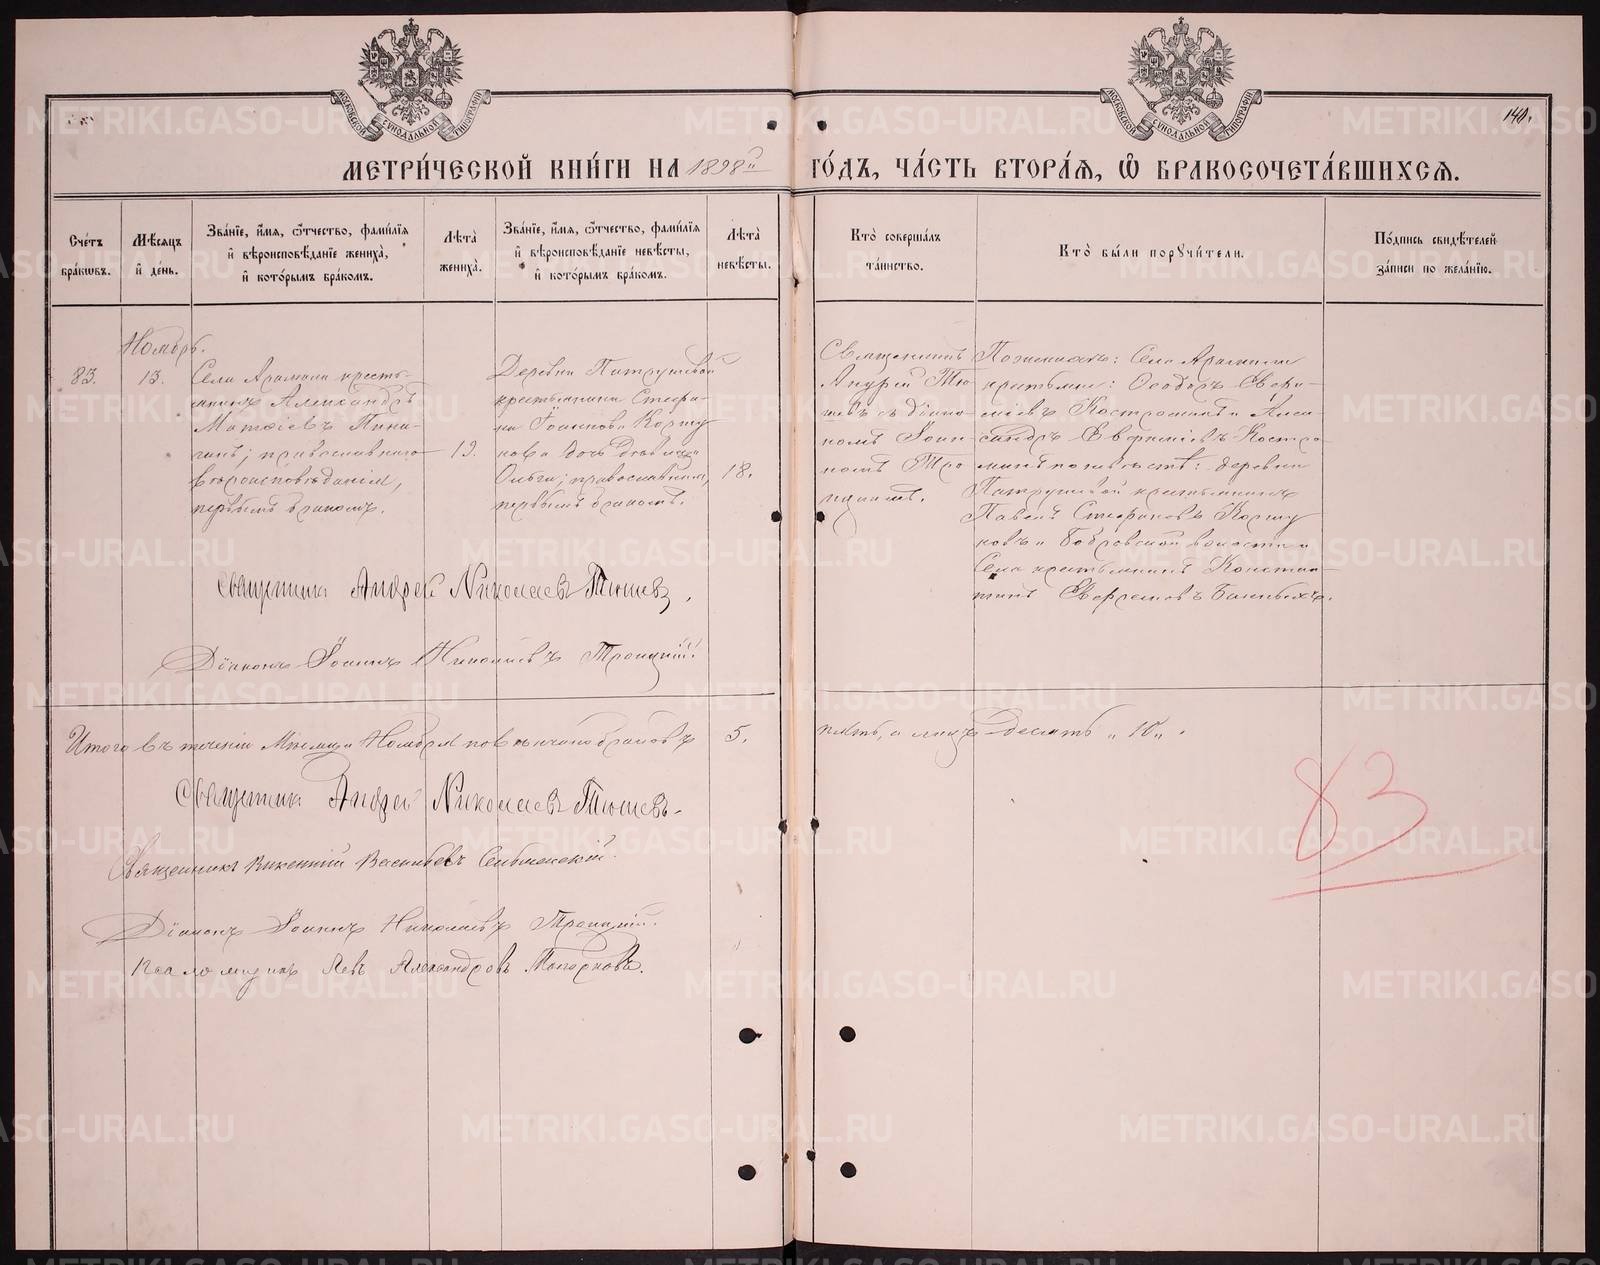 МОСКОВСКОЙ СѴНОДАЛЬНОЙ ТИПОГРАФІИ
МОСКОВСКОЙ СѴНОДАЛЬНОЙ ТИПОГРАФІИ
140.
МЕТРИ́ЧЕСКОЙ КНИ́ГИ НА 1898й ГО́ДЪ, ЧА́СТЬ ВТОРА́Я, Ѡ БРАКОСОЧЕТА́ВШИХСЯ.
Сче́тъ бра́кѡвъ.
Мѣ́сяцъ и҆ де́нь.
Зва́нїе, и҆́мя, ѻ҆́тчество, фами́лїѧ и҆ вѣроисповѣ́данїе жениха̀, и҆ кото́рымъ бра́комъ.
Лѣ́та жениха̀.
Зва́нїе, и҆́мя, ѻ҆́тчество, фами́лїѧ и҆ вѣроисповѣ́данїе невѣ́сты, и҆ кото́рымъ бра́комъ.
Лѣ́та невѣ́сты.
Кто̀ соверша́лъ та́инство.
Кто̀ бы́ли порꙋчи́тели.
По́дпись свидѣ́телей за́писи по жела́нїю.
Ноябрь.
83.
13.
Села Арамили кресть-
янинъ Александръ
Матѳіевъ
православнаго
вѣроисповѣданія,
первымъ бракомъ.
19.
Деревни Патрушевой
крестьянина Стефа-
на Іоаннова Коршу
нова дочь дѣвица
Ольга; православная,
первымъ бракомъ.
18.
Священникъ
Андрей Тю
шевъ съ діако
номъ Іоан
номъ Тро
ицкимъ.
По женихѣ: Села Арамили
крестьяне: Ѳеодоръ
Костроминъ и Алек
сандръ Евфиміевъ Костро
минъ по невѣстѣ: деревни
Патрушевой крестьянинъ
Павелъ Стефановъ Коршу
новъ и Бобровской волости и
Села крестьянинъ Констан
тинъ Ефремовъ Банныхъ.
Священникъ Андрей Николаевъ Тюшевъ,
Діаконъ Іоаннъ Николаевъ Троицкій.
Итого въ теченіи Мѣсяца Ноября повѣнчано браковъ 5. пять, а лицъ Десять „10„.
Священникъ Андрей Николаевъ Тюшевъ.
83
Священникъ Викентій Васильевъ Сельменскій.
Діаконъ Іоаннъ Николаевъ Троицкій.
Псаломщикъ Левъ Александровъ Топорковъ.
METRIKI.GASO-URAL.RU